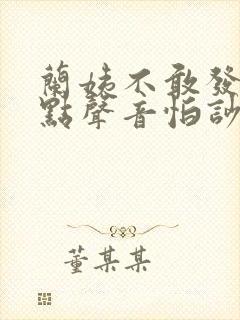 蘭姨不敢發
點聲音怕訬
董某某